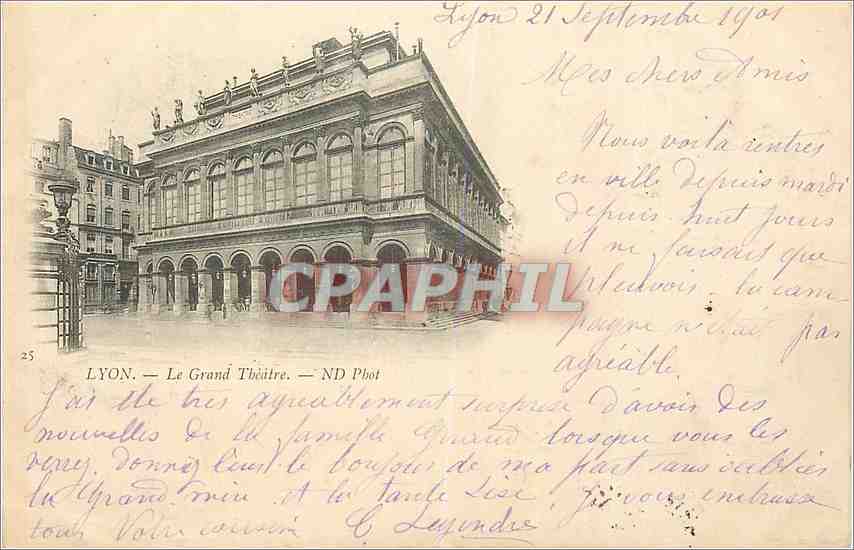 Lyon 21 Septembre 1901
Mes chers Amis
Nous voilà rentrés
en ville depuis mardi
depuis huit jours
il ne faisais que
pleuvoir. la cam
pagne n'était pas
agréable.
CPARPHIL
25
LYON. — Le Grand Théâtre. — ND Phot
J'ai été très agréablement surprise d'avoir des
nouvelles de la famille lorsque vous les
verrez donnez leur le bonjour de ma part sans oublier
la Grand mère et la tante Lise. Je vous embrasse
tous Votre cousine C Legendre